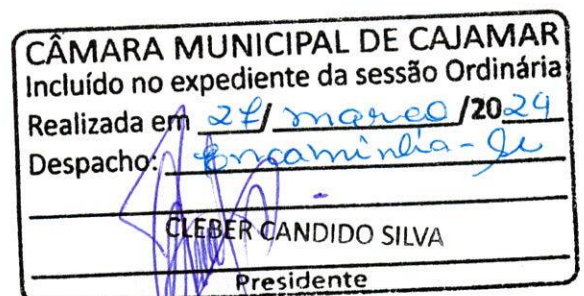 CÂMARA MUNICIPAL DE CAJAMAR
Incluído no expediente da sessão Ordinária
Realizada em 27/ março /2024
Despacho: Encaminha-se
CLEBER CANDIDO SILVA
Presidente